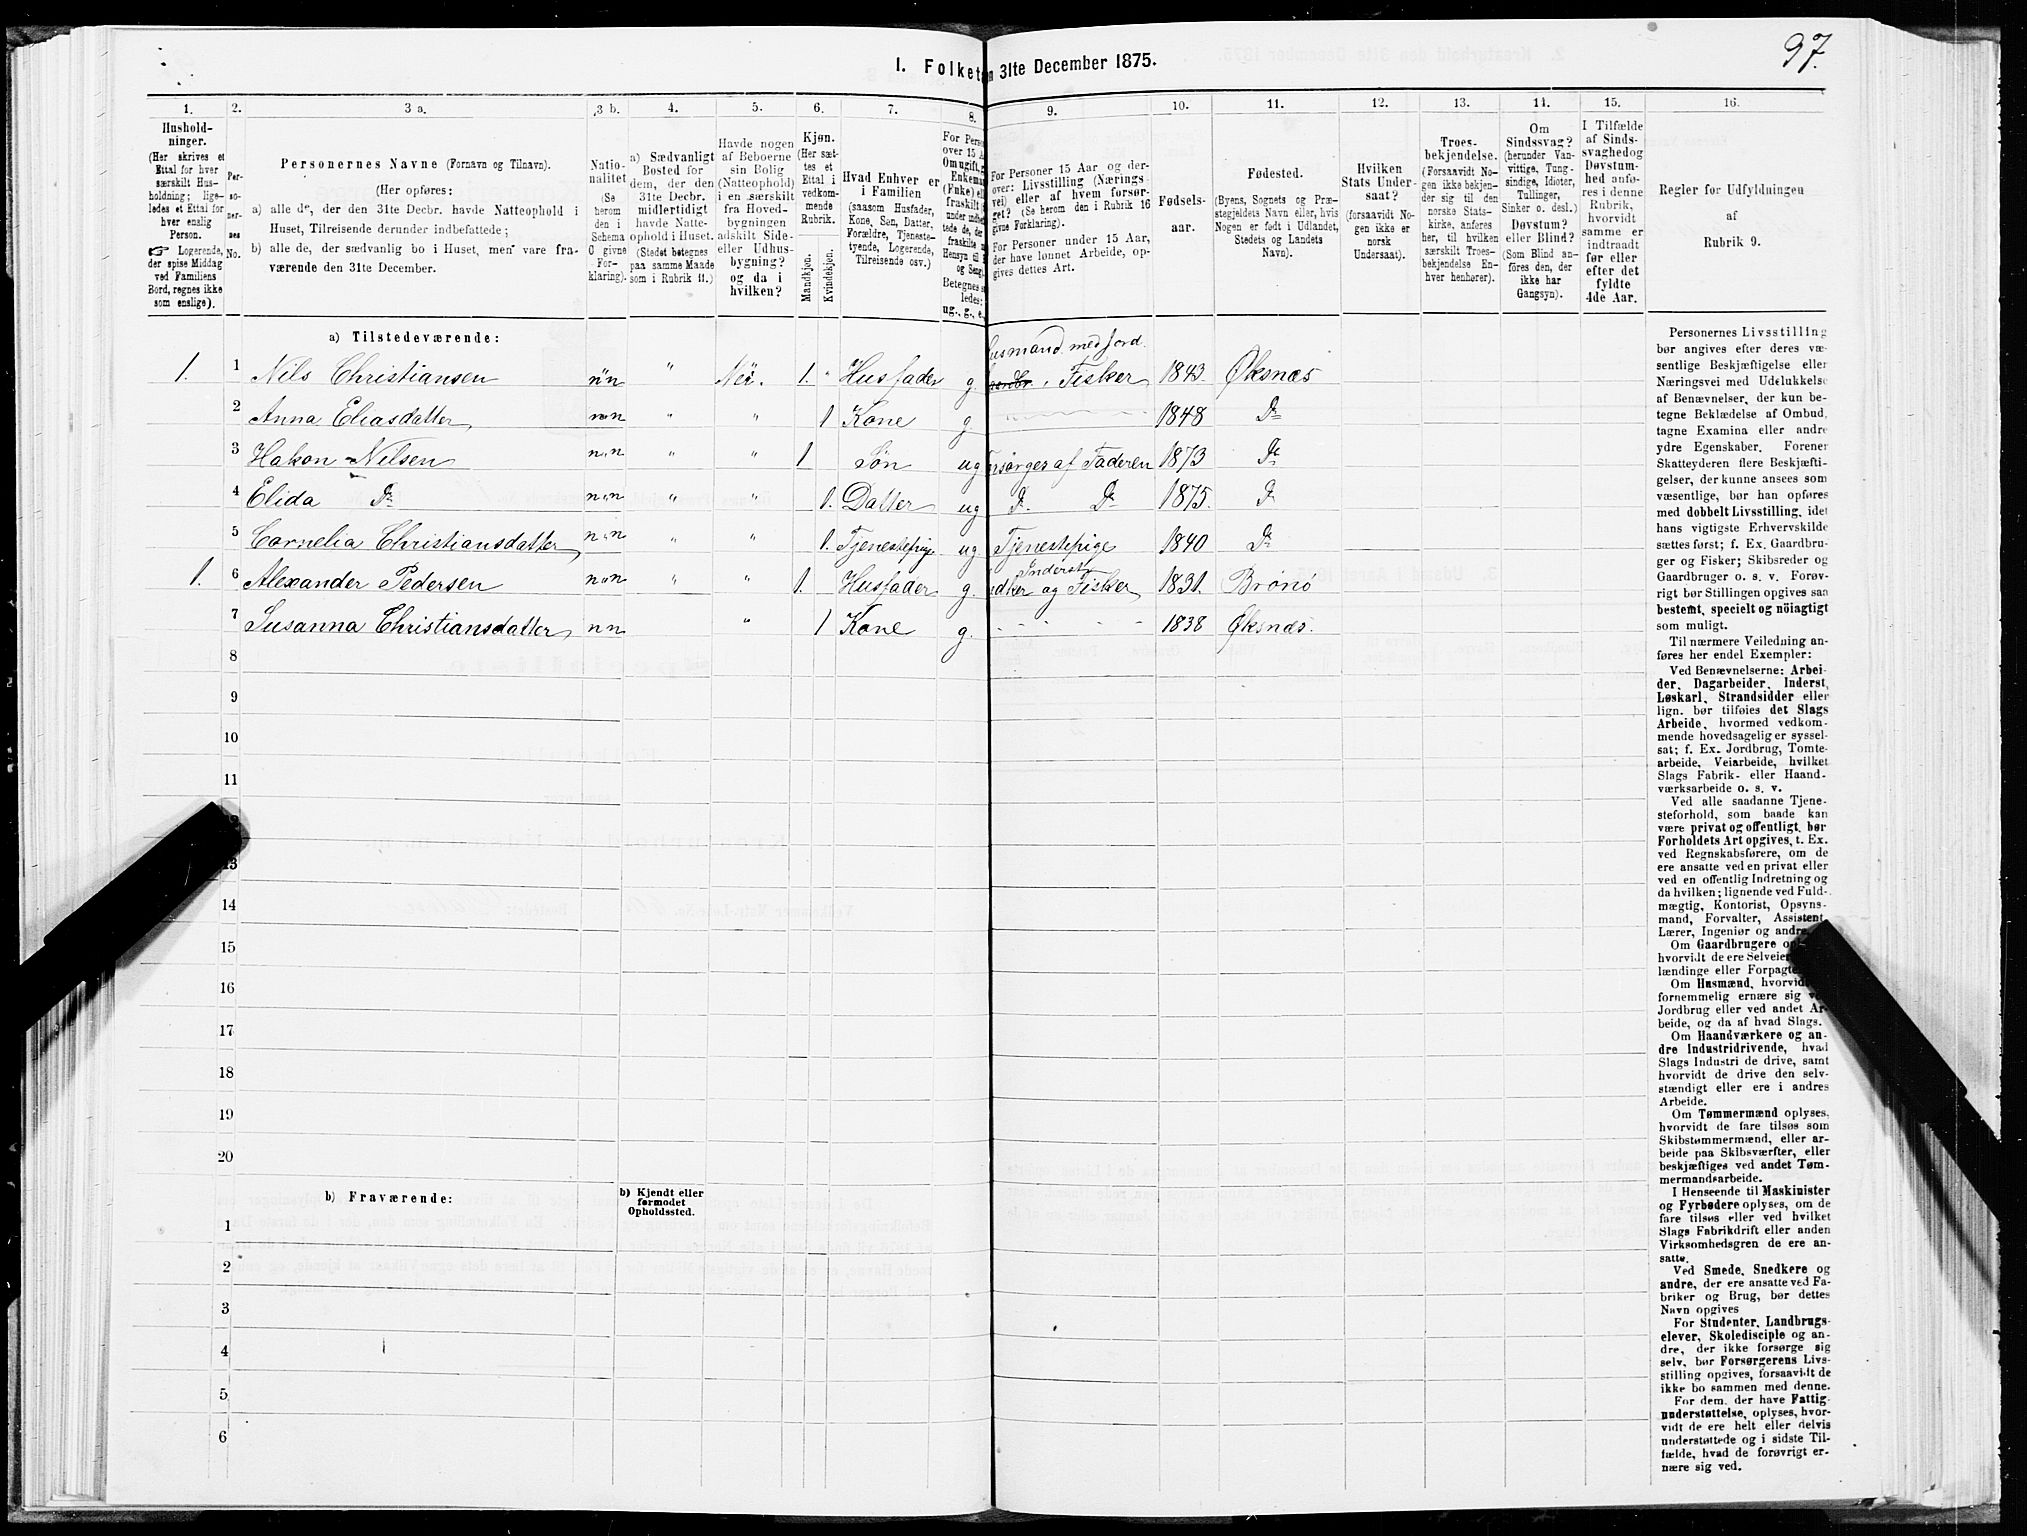 97.
I. Folket n 31te December 1875.
1. 2. 3 a. 3 b. 4. 5. 6. 7. 8. 9. 10. 11. 12. 13. 14. 15. 16.
Hushold-
ninger.
(Her skrives et
Ettal for hver
særskilt Hus-
holdning; lige-
ledes et Ettal for
hver enslig
Person.
☞ Logerende,
der spise Middag
ved Familiens
Bord, regnes ikke
som enslige).
Per-
so-
ner-
nes
No.
Personernes Navne (Fornavn og Tilnavn).
(Her opføres:
a) alle de, der den 31te Decbr. havde Natteophold i
Huset, Tilreisende derunder indbefattede;
b) alle de, der sædvanlig bo i Huset, men vare fra-
værende den 31te December.
Natio-
nalitet
(Se
herom
den i
Schema
6 givne
For-
klaring).
a) Sædvanligt
Bosted for
dem, der den
31te Decbr.
midlertidigt
havde Natte-
ophold i Huset.
(Stedet betegnes
paa samme Maade
som i Rubrik 11.)
Havde nogen
af Beboerne
sin Bolig
(Natteophold)
i en særskilt
fra Hoved-
bygningen
adskilt Side-
eller Udhus-
bygning?
og da i
hvilken?
Kjøn.
(Her sæt-
tes et
Ettal i
vedkom-
mende
Rubrik.
Mandkjøn.
Kvindekjøn.
Hvad Enhver er
i Familien
(saasom Husfader,
Kone, Søn, Datter,
Forældre, Tjeneste-
tyende, Logerende,
Tilreisende osv.)
For Pers
over 15 A
Om ugift, g
Enkema
(Fnke) el
fraskilt
under indbe
tede de, der
fraskilte
Hensyn til
og Seng
Betegnes s
ledes:
ug., g., e.,
For Personer 15 Aar og der-
over: Livsstilling (Nærings-
vei) eller af hvem forsør-
get? (Se herom den i Rubrik 16
givne Forklaring).
For Personer under 15 Aar,
der have lønnet Arbeide, op-
gives dettes Art.
Fødsels-
aar.
Fødested.
(Byens, Sognets og Præ-
stegjeldets Navn eller, hvis
Nogen er født i Udlandet,
Stedets og Landets
Navn).
Hvilken
Stats Under-
saat?
(forsaavidt No-
gen ikke er
norsk
Undersaat).
Troes-
bekjendelse.
(Forsaavidt No-
gen ikke bekjen-
der sig til den
norske Stats-
kirke, anføres
her, til hvilken
særskilt Troes-
bekjendelse En-
hver henhører).
Om
Sindssvag?
(herunder Van-
vittige, Tung-
sindige, Idioter,
Tullinger,
Sinker o. desl.)
Døvstum?
eller Blind?
(Som Blind an-
føres den, der
ikke har
Gangsyn).
I Tilfælde
af Sinds-
svaghed og
Døvstum-
hed anfø-
res i denne
Rubrik,
hvorvidt
samme er
indtraadt
før eller
efter det
fyldte
4de Aar.
Regler for Udfyldningen
af
Rubrik 9.
a) Tilstedeværende:
usmand med jord.
1. 1 Nils Christiansen n"n " Nei. 1. " Husfader g. Fisker 1843. Øksnæs
2 Anna Eliasdatter n"n " " 1 Kone g. 1848 Do
3 Hakon Nilsen n"n " " 1 Søn ug orsørges af Faderen 1873 Do
4 Elida Do n"n " " 1. Datter ug Do Do 1875. Do
5 Cornelia Christiansdatter n"n " " 1. Tjenestepige ug Tjenestepige 1840 Do
Inderst
1. 6 Alexander Pedersen n"n " " 1. Husfader g. og Fisker 1831. Brønø
7 Susanna Christiansdatter n n " 1 Kone g. 1838 Øksnæs.
8
9
10
11
13
14
15
16
17
18
19
20
b) Fraværende:
b) Kjendt eller
formodet
Opholdssted.
1
2
3
4
5
6
Personernes Livsstilling
bør angives efter deres væ-
sentlige Beskjæftigelse eller
Næringsvei med Udelukkelse
af Benævnelser, der kun be-
tegne Beklædelse af Ombud,
tagne Examina eller andre
ydre Egenskaber. Forener
Skatteyderen flere Beskjæfti-
gelser, der kunne ansees som
væsentlige, bør han opføres
med dobbelt Livsstilling, idet
hans vigtigste Erhvervskilde
sættes først; f. Ex. Gaardbru-
ger og Fisker; Skibsreder og
Gaardbruger o. s. v. Forøv-
rigt bør Stillingen opgives saa
bestemt, specielt og nöiagtigt
som muligt.
Til nærmere Veiledning an-
føres her endel Exempler:
Ved Benævnelserne: Arbei-
der, Dagarbeider, Inderst,
Løskarl, Strandsidder eller
lign. bør tilføies det Slags
Arbeide, hvormed vedkom-
mende hovedsagelig er syssel-
sat; f. Ex. Jordbrug, Tomte-
arbeide, Veiarbeide, hvilket
Slags Fabrik- eller Haand-
værksarbeide o. s. v.
Ved alle saadanne Tjene-
steforhold, som baade kan
være privat og offentligt, bør
Forholdets Art opgives, t. Ex.
ved Regnskabsførere, om de
ere ansatte ved en privat eller
ved en offentlig Indretning og
da hvilken; lignende ved Fuld-
mægtig, Kontorist, Opsyns-
mand, Forvalter, Assistent,
Lærer, Ingeniør og andre.
Om Gaardbrugere op-
hvorvidt de ere Selveier
lændinge eller Forpagte
Om Husmænd, hvorvid
fornemmelig ernære sig v
Jordbrug eller ved andet Ar-
beide, og da af hvad Slags.
Om Haandværkere og an-
dre Industridrivende, hvad
Slags Industri de drive, samt
hvorvidt de drive den selv-
stændigt eller ere i andres
Arbeide.
Om Tømmermænd oplyses,
hvorvidt de fare tilsøs som
Skibstømmermænd, eller ar-
beide paa Skibsværfter, eller
beskjæftiges ved andet Tøm-
mermandsarbeide.
I Henseende til Maskinister
og Fyrbødere oplyses, om de
fare tilsøs eller ved hvilket
Slags Fabrikdrift eller anden
Virksomhedsgren de ere an-
satte.
Ved Smede, Snedkere og
andre, der ere ansatte ved Fa-
briker og Brug, bør dettes
Navn opgives
For Studenter, Landbrugs-
elever, Skoledisciple og an-
dre, der ikke forsørge sig
selv, bør Forsørgerens Livs-
stilling opgives, forsaavidt de
ikke bo sammen med denne.
For dem, der have Fattig-
understøttelse, oplyses, hvor-
vidt de ere helt eller delvis
understøttede og i sidste Til-
fælde, hvad de forøvrigt er-
nære sig ved.